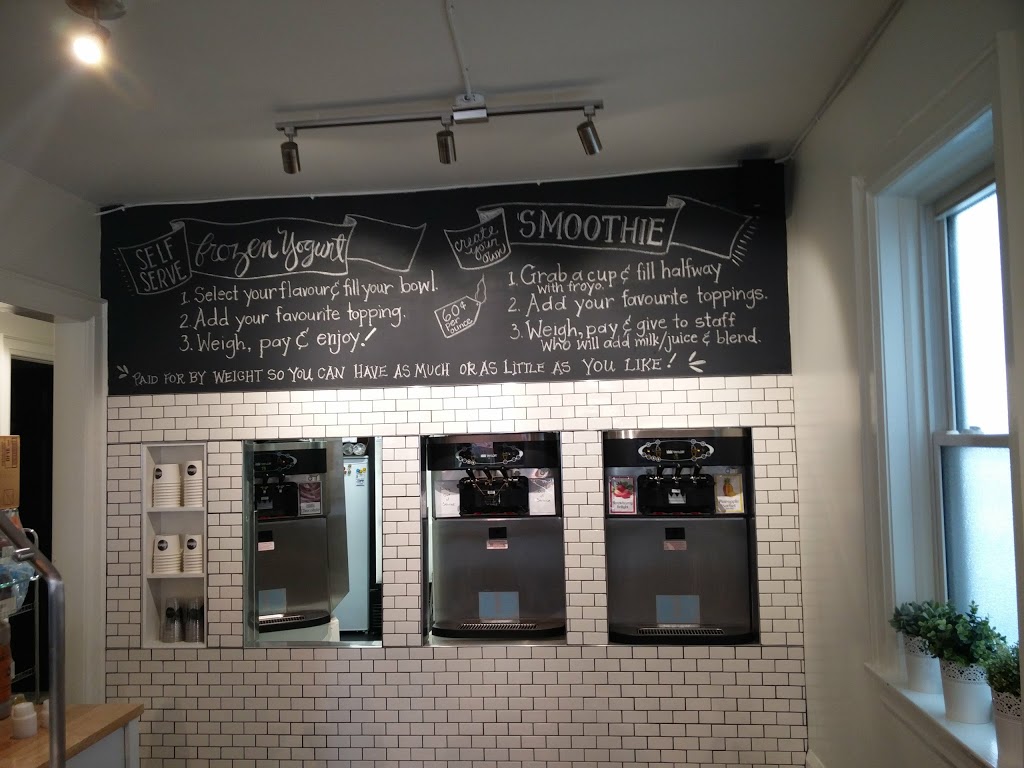 SELF
SERVE
frozen Yogurt
1. Select your flavour & fill your bowl.
2. Add your favourite topping.
3. Weigh, pay & enjoy!
60¢
ounce
create
your
own
SMOOTHIE
1. Grab a cup & fill halfway
with froyo.
2. Add your favourite toppings.
3. Weigh, pay & give to staff
who will add milk/juice & blend.
PAID FOR BY WEIGHT SO YOU CAN HAVE AS MUCH OR AS LITTLE AS YOU LIKE!